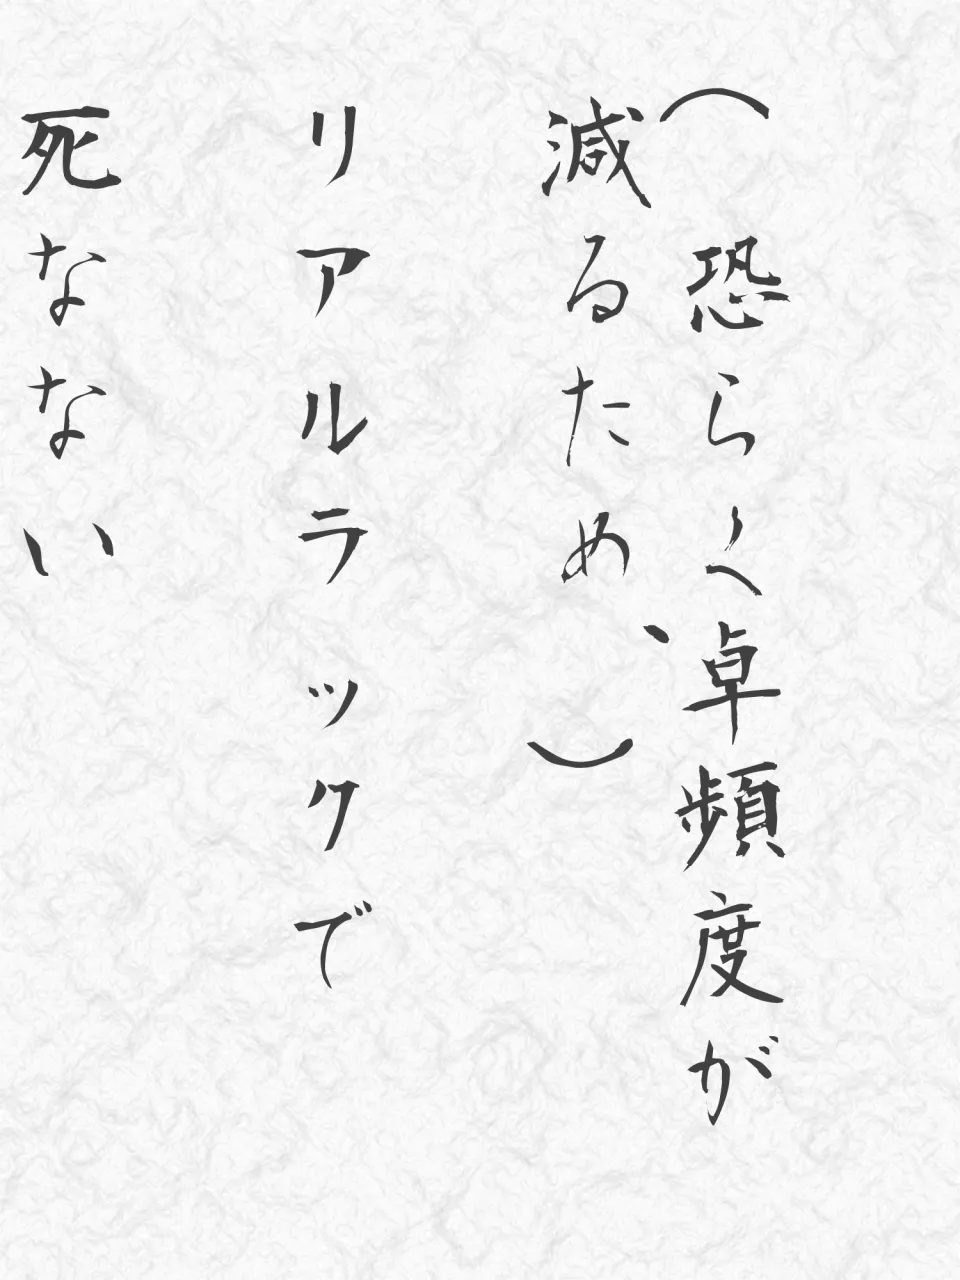 (恐らく卓頻度が
減るため、)
リアルラックで
死なない